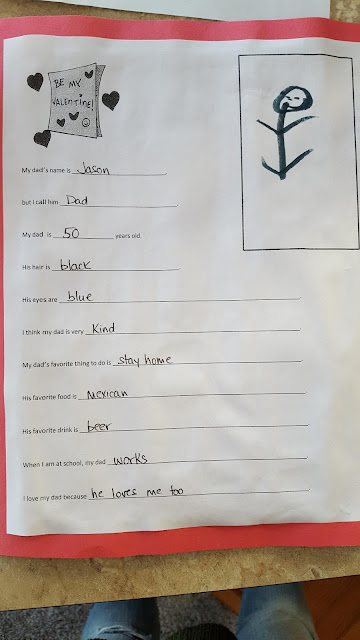 BE MY
VALENTINE!
My dad's name is Jason
but I call him Dad
My dad is 50 years old.
His hair is black
His eyes are blue
I think my dad is very Kind
My dad's favorite thing to do is stay home
His favorite food is Mexican
His favorite drink is beer
When I am at school, my dad works
I love my dad because he loves me too